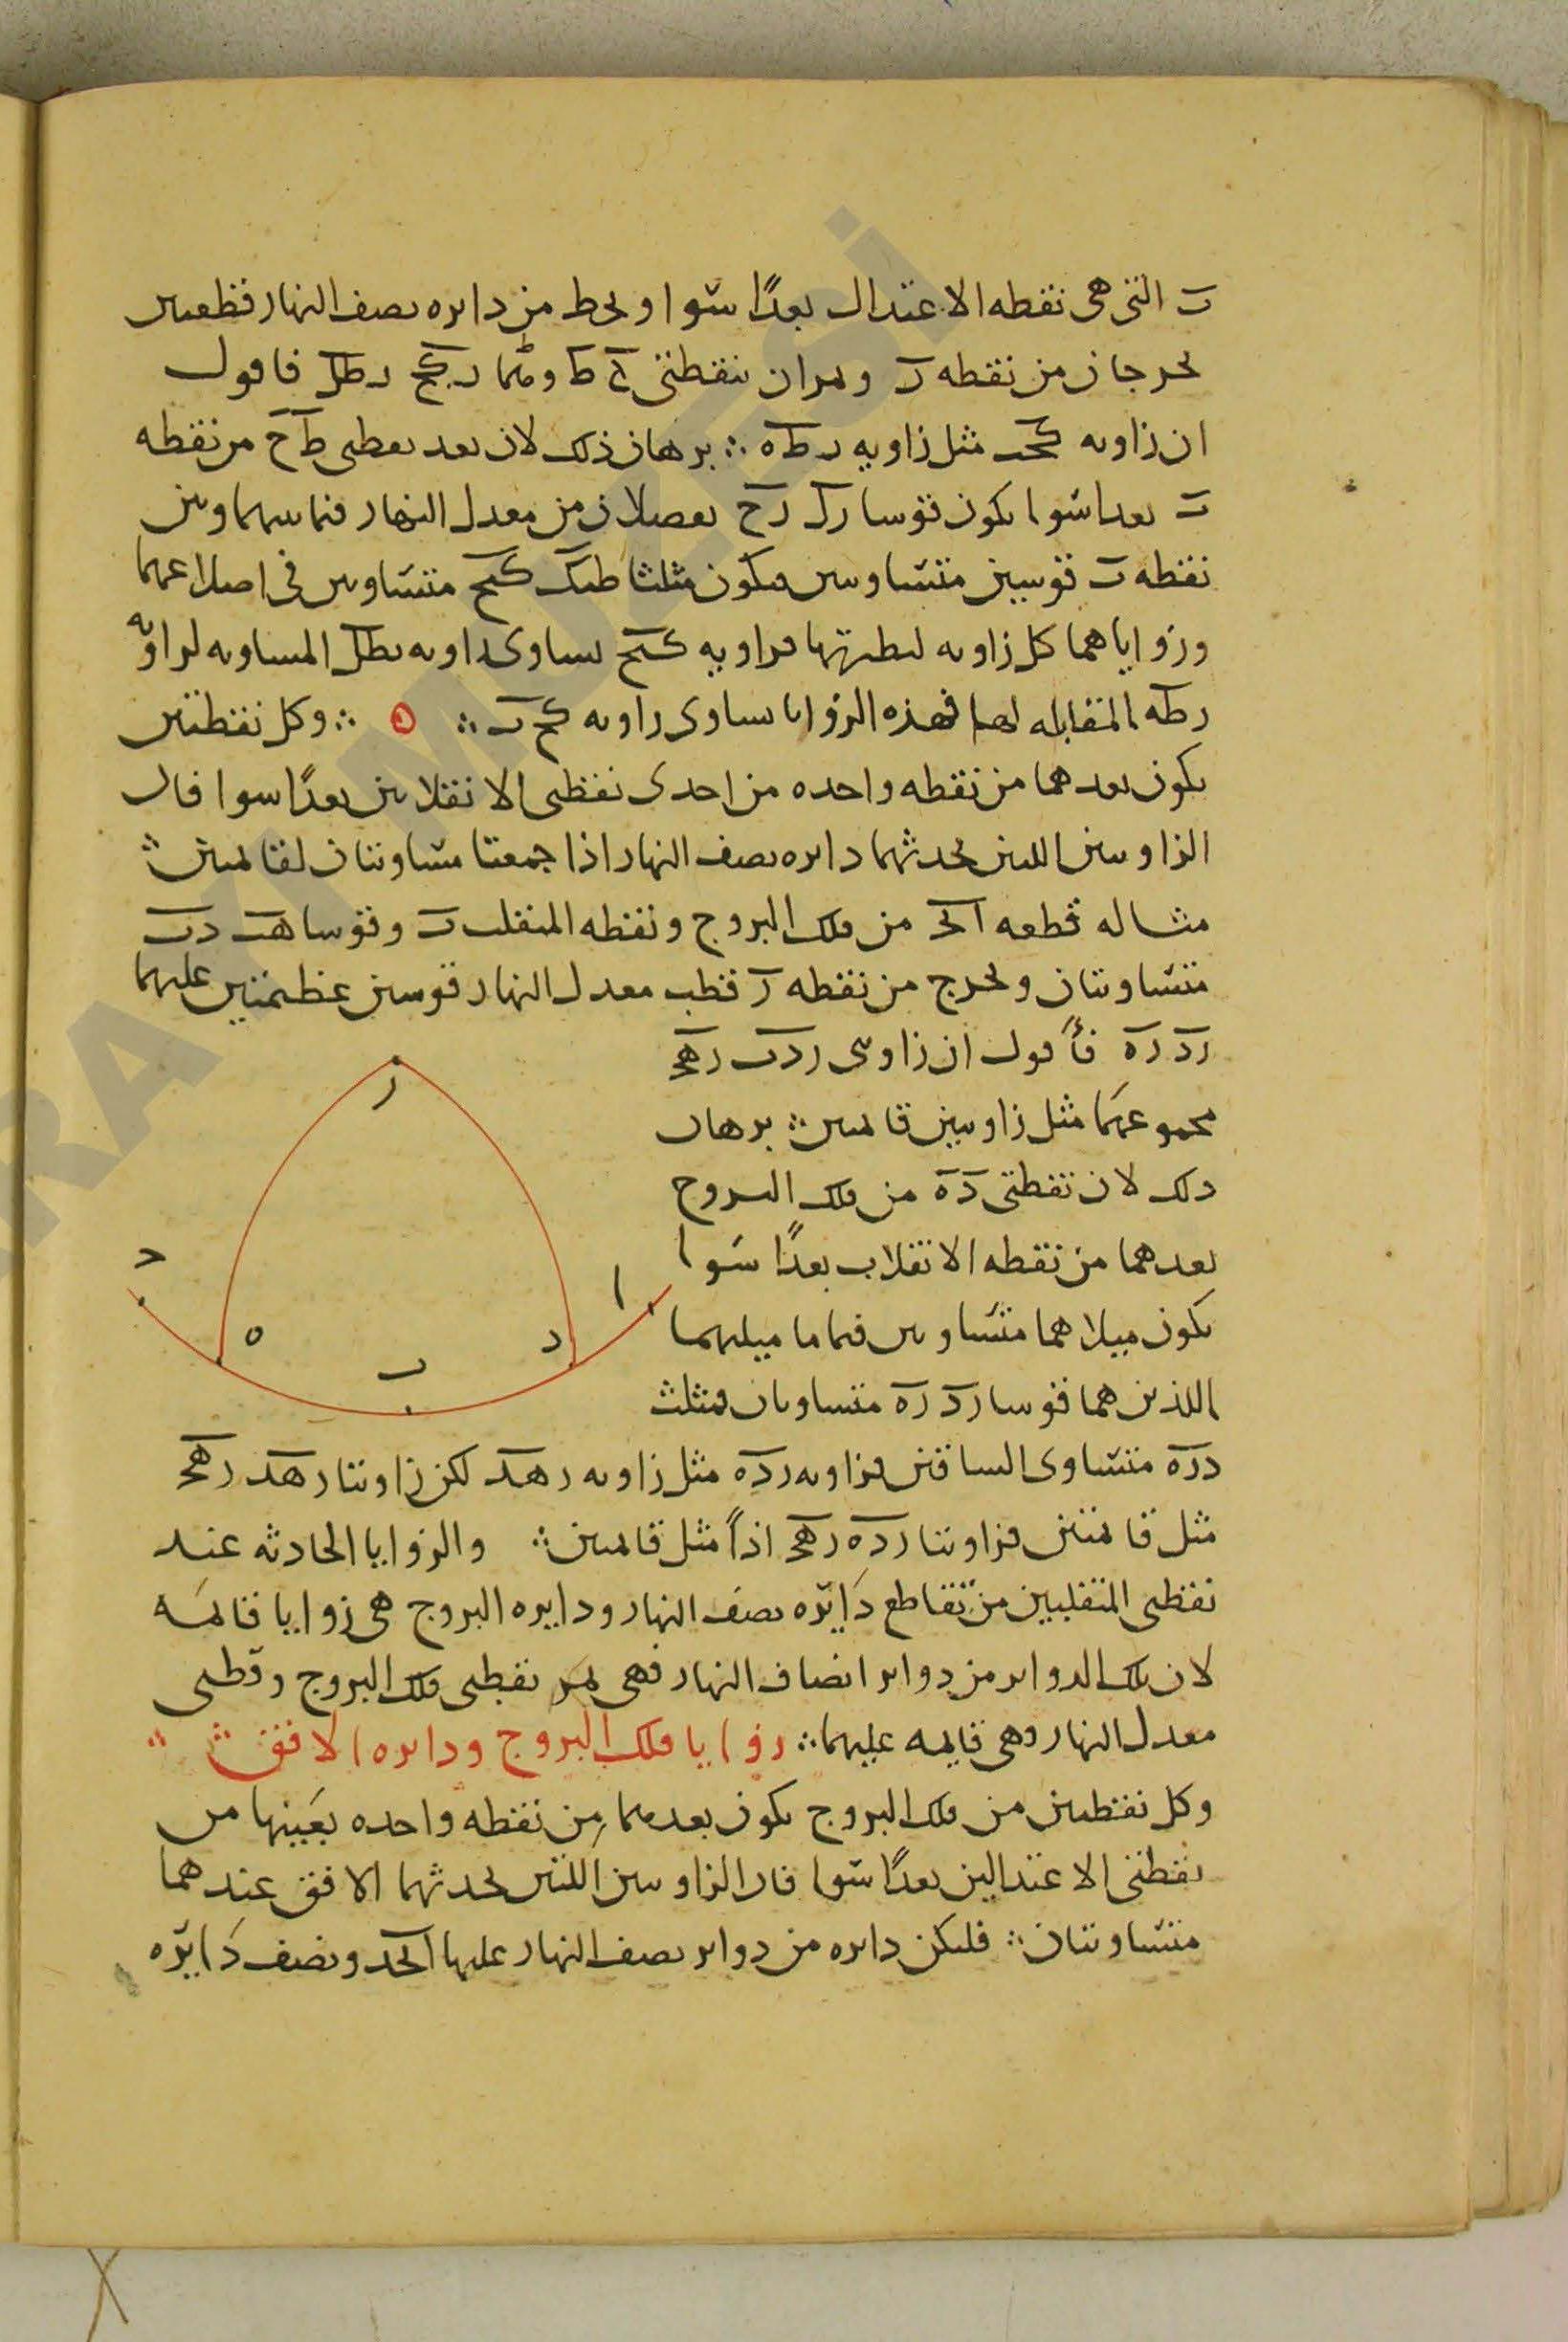 ب التي هي نقطه الاعتدال بعدًا سوا ونخط من دايره نصف النهار قطعتين
تخرجان من نقطه ر وتمران بنقطتي ح ط وهما ركح رطل فاقول
ان زاويه كحب مثل زاويه رطه ∴ برهان ذلك لان بعد نقطتي ط ح من نقطه
ب بعدا سوا يكون قوسا رل رح يفصلان من معدل النهار فيما بينهما وبين
نقطه ب قوسين متساويين فيكون مثلثا طبل كبح متساويين في اضلاعهما
وزواياهما كل زاويه لنظيرتها فزاويه كبح تساوي زاويه بطل المساويه لزاويه
رطه المقابله لها فهذه الزوايا تساوي زاويه كح ب ∴ ه ∴ وكل نقطتين
يكون بعدهما من نقطه واحده من احدى نقطتي الانقلابين بعدًا سوا فان
الزاويتين اللتين تحدثهما دايره نصف النهار اذا جمعتا مساويتان لقائمتين ∴
مثاله قطعه ابحـ من فلك البروج ونقطه المنقلب ب وقوسا هب دب
متساويتان ونخرج من نقطه ر قطب معدل النهار قوسين عظيمتين عليهما
رد ره فأقول ان زاويتي ردب رهحـ
مجموعهما مثل زاويتين قائمتين ∴ برهان
ذلك لان نقطتي ده من فلك البروج
بعدهما من نقطه الانقلاب بعدًا سوا
يكون ميلاهما متساويين فتماما ميليهما
اللذين هما قوسا رد ره متساويان فمثلث
دره متساوي الساقين فزاويه رده مثل زاويه رهد لكن زاويتا رهد رهحـ
مثل قائمتين فزاويتا رده رهحـ اذاً مثل قائمتين ∴ والزوايا الحادثه عند
نقطتي المنقلبين من تقاطع دايره نصف النهار ودايره البروج هي زوايا قائمه
لان تلك الدواير من دواير انصاف النهار فهي تمر بقطبي فلك البروج وقطبي
معدل النهار وهي قايمه عليهما ∴ زوايا فلك البروج ودايره الافق ∴ ∴
وكل نقطتين من فلك البروج يكون بعدهما من نقطه واحده بعينها من
نقطتي الاعتدالين بعدًا سوا فان الزاويتين اللتين تحدثهما الافق عندهما
متساويتان ∴ فليكن دايره من دواير نصف النهار عليها ابحد ونصف دايره
ر
حـ
ه
ب
د
ا